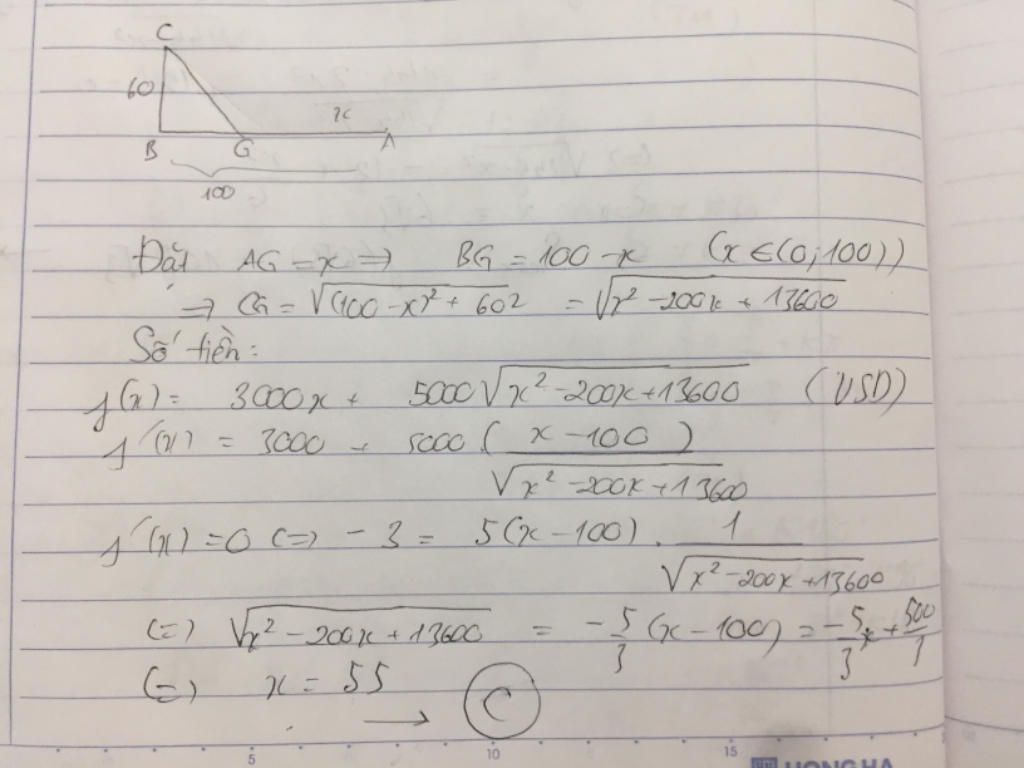 C
60
x
B G A
100
Đặt AG = x ⇒ BG = 100 - x (x ∈ (0; 100))
⇒ CG = √((100 - x)² + 60²) = √(x² - 200x + 13600)
Số tiền:
f(x) = 3000x + 5000√(x² - 200x + 13600) (USD)
f'(x) = 3000 + 5000 ( (x - 100) / √(x² - 200x + 13600) )
f'(x) = 0 (=) - 3 = 5(x - 100) . 1 / √(x² - 200x + 13600)
(=) √(x² - 200x + 13600) = - 5/3 (x - 100) = -5/3 x + 500/3
(=) x = 55
→ C
5 10 15
HONG HA